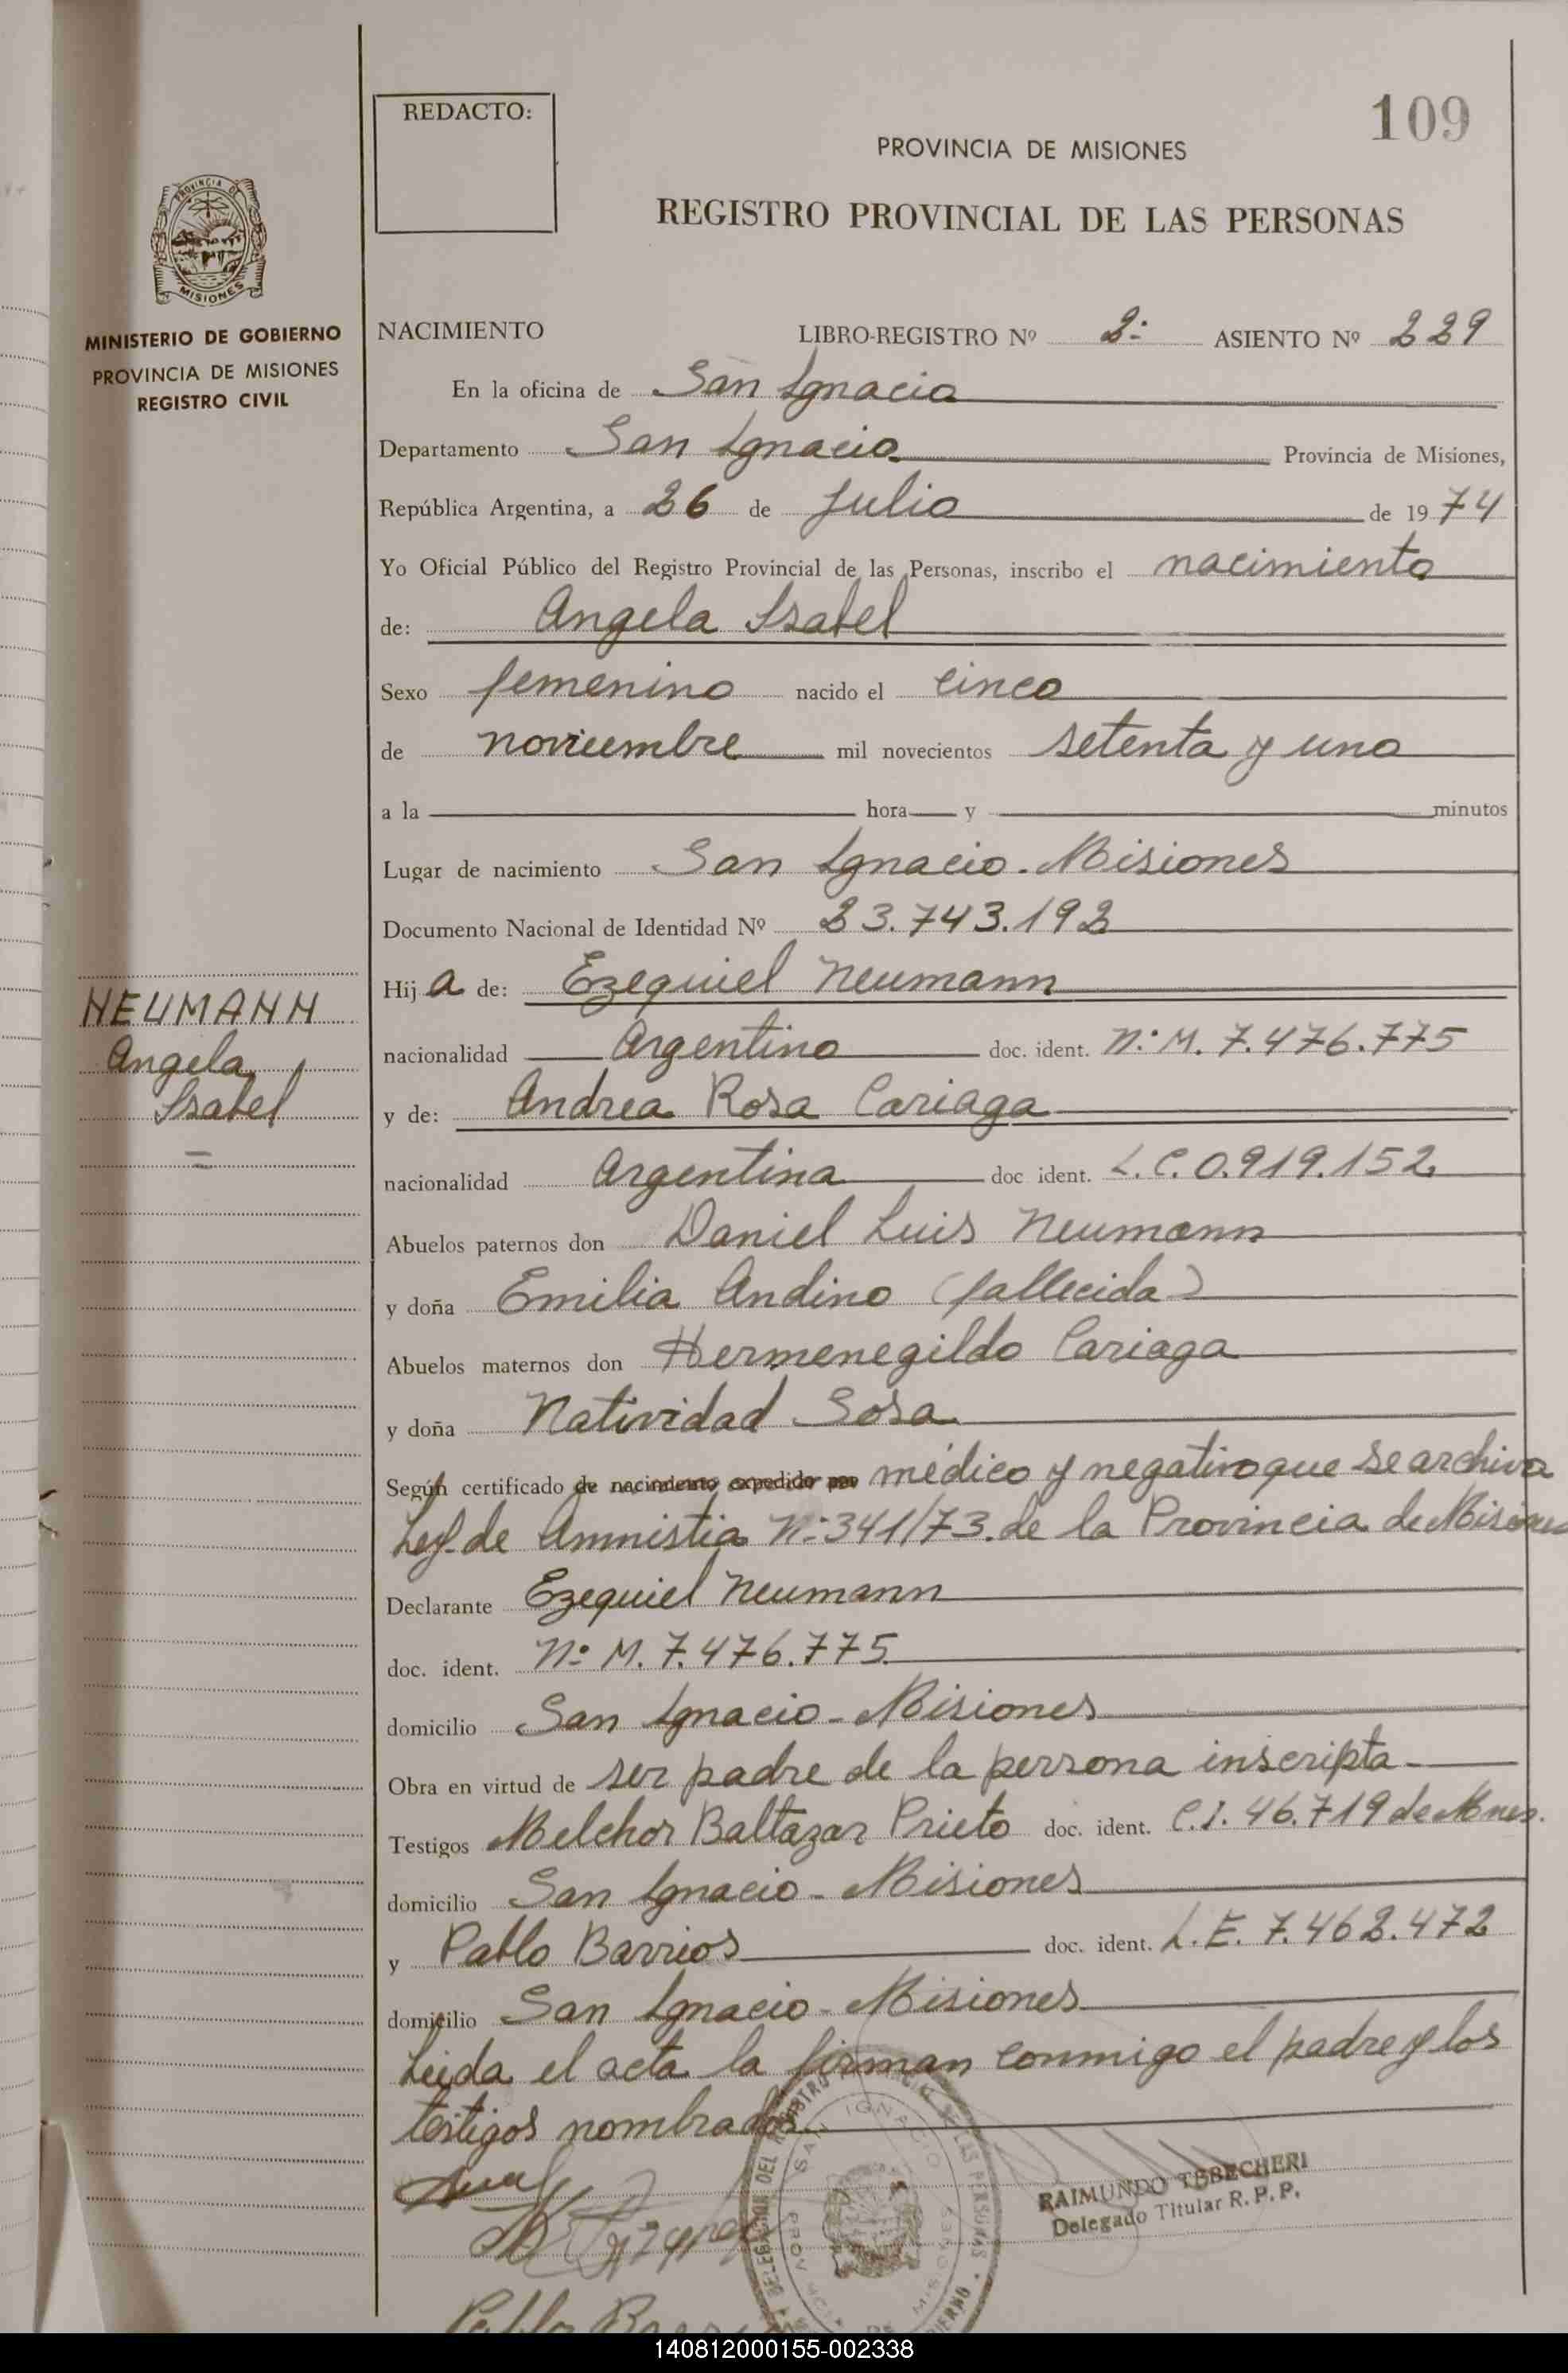 109
REDACTO:
PROVINCIA DE MISIONES
REGISTRO PROVINCIAL DE LAS PERSONAS
PROVINCIA DE
MISIONES
MINISTERIO DE GOBIERNO
PROVINCIA DE MISIONES
REGISTRO CIVIL
NACIMIENTO LIBRO-REGISTRO Nº 2: ASIENTO Nº 229
En la oficina de San Ignacio
Departamento San Ignacio Provincia de Misiones,
República Argentina, a 26 de Julio de 1974
Yo Oficial Público del Registro Provincial de las Personas, inscribo el nacimiento
de: Angela Isabel
Sexo femenino nacido el cinco
de noviembre mil novecientos setenta y uno
a la hora y minutos
Lugar de nacimiento San Ignacio - Misiones
Documento Nacional de Identidad Nº 23.743.192
NEUMANN
Angela
Isabel
Hija de: Ezequiel Neumann
nacionalidad Argentino doc. ident. N: M. 7.476.775
y de: Andrea Rosa Cariaga
nacionalidad Argentina doc ident. L.C. 0.919.152
Abuelos paternos don Daniel Luis Neumann
y doña Emilia Andino (fallecida)
Abuelos maternos don Hermenegildo Cariaga
y doña Natividad Sosa
Según certificado de nacimiento expedido por médico y negativo que se archiva
Ley de Amnistia N: 341/73. de la Provincia de Misiones
Declarante Ezequiel Neumann
doc. ident. N: M. 7.476.775
domicilio San Ignacio - Misiones
Obra en virtud de ser padre de la persona inscripta -
Testigos Melchor Baltazar Prieto doc. ident. C.I. 46.719 de Mnes.
domicilio San Ignacio - Misiones
y Pablo Barrios doc. ident. L.E. 7.462.472
domicilio San Ignacio - Misiones
Leida el acta la firman conmigo el padre y los
testigos nombrados.
DELEGACION DEL REGISTRO DE LAS PERSONAS
SAN IGNACIO
RAIMUNDO TEBECHERI
Delegado Titular R. P. P.
140812000155-002338